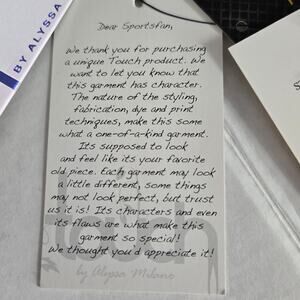 BY ALYSSA
Dear Sportsfan,
We thank you for purchasing
a unique Touch product. We
want to let you know that
this garment has character.
The nature of the styling,
fabrication, dye and print
techniques, make this some
what a one-of-a-kind garment.
Its supposed to look
and feel like its your favorite
old piece. Each garment may look
a little different, some things
may not look perfect, but trust
us it is! Its characters and even
its flaws are what make this
garment so special!
We thought you'd appreciate it!
by Alyssa Milano